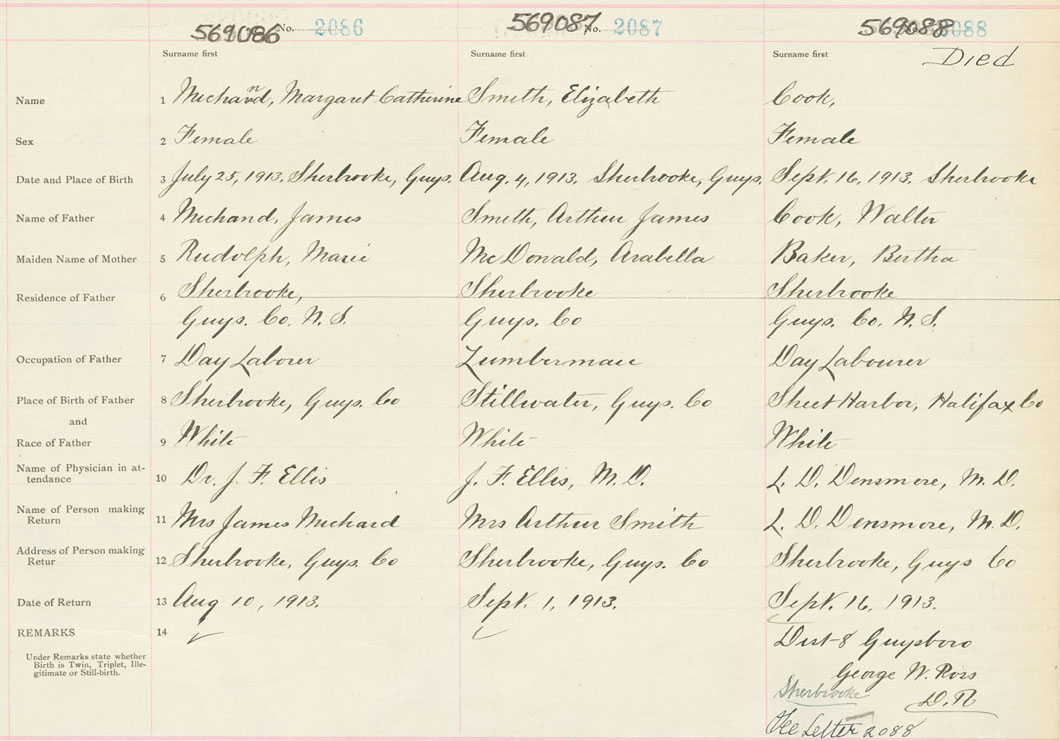 569086 No. 2086 569087 No. 2087 569088 2088
Surname first Surname first Surname first Died
Name 1 Michand, Margaret Catherine Smith, Elizabeth Cook,
Sex 2 Female Female Female
Date and Place of Birth 3 July 25, 1913. Sherbrooke, Guys. Aug. 4, 1913. Sherbrooke, Guys. Sept. 16, 1913. Sherbrooke
Name of Father 4 Michand, James Smith, Arthur James Cook, Walter
Maiden Name of Mother 5 Rudolph, Marie McDonald, Arabella Baker, Bertha
Residence of Father 6 Sherbrooke, Sherbrooke Sherbrooke
Guys. Co. N. S. Guys. Co Guys. Co. N. S.
Occupation of Father 7 Day Laborer Lumberman Day Labourer
Place of Birth of Father 8 Sherbrooke, Guys. Co Stillwater, Guys. Co Sheet Harbor, Halifax Co
and
Race of Father 9 White White White
Name of Physician in at-
tendance 10 Dr. J. F. Ellis J. F. Ellis, M. D. L. D. Densmore, M. D.
Name of Person making
Return 11 Mrs James Michard Mrs Arthur Smith L. D. Densmore, M. D.
Address of Person making
Retur 12 Sherbrooke, Guys. Co Sherbrooke, Guys. Co Sherbrooke, Guys Co
Date of Return 13 Aug 10, 1913. Sept. 1, 1913. Sept. 16, 1913.
REMARKS 14 Dist-8 Guysboro
Under Remarks state whether
Birth is Twin, Triplet, Ille-
gitimate or Still-birth.
George W. Ross
Sherbrooke D. R
See Letter 2088